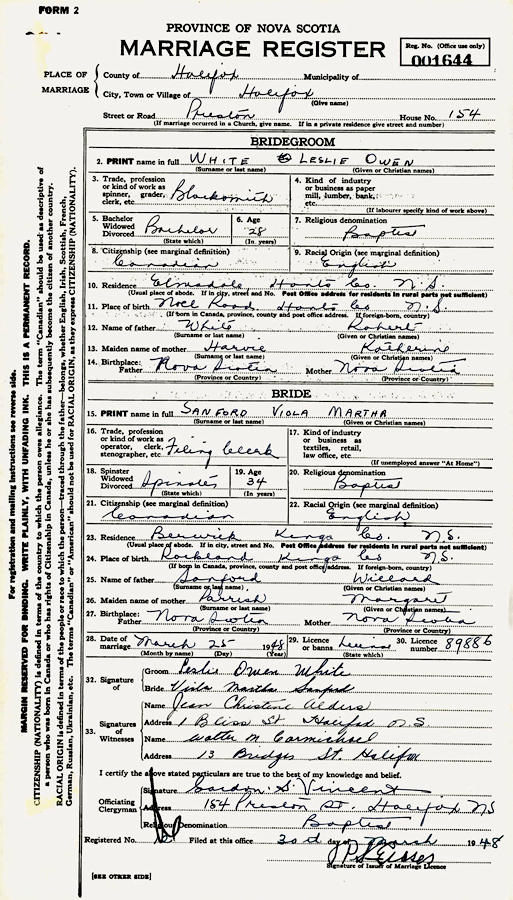 FORM 2
PROVINCE OF NOVA SCOTIA
MARRIAGE REGISTER
Reg. No. (Office use only)
001644
PLACE OF MARRIAGE
County of Halifax Municipality of
City, Town or Village of Halifax
(Give name)
Street or Road Preston House No. 154
(If marriage occurred in a Church, give name. If in a private residence give street and number)
BRIDEGROOM
2. PRINT name in full WHITE LESLIE OWEN
(Surname or last name) (Given or Christian names)
3. Trade, profession or kind of work as spinner, grader, clerk, etc. Blacksmith
4. Kind of industry or business as paper mill, lumber, bank, etc.
(If labourer specify kind of work above)
5. Bachelor Widowed Divorced Bachelor
(State which)
6. Age 28
(In years)
7. Religious denomination
Baptist
8. Citizenship (see marginal definition)
Canadian
9. Racial Origin (see marginal definition)
English
10. Residence Elmsdale Hants Co. N.S.
(Usual place of abode. If in city, street and No. Post Office address for residents in rural parts not sufficient)
11. Place of birth Noel Road Hants Co N.S.
(If born in Canada, province, county and post office address. If foreign-born, country)
12. Name of father White Robert
(Surname or last name) (Given or Christian names)
13. Maiden name of mother Harvie Katherine
(Surname or last name) (Given or Christian names)
14. Birthplace: Father Nova Scotia Mother Nova Scotia
(Province or Country) (Province or Country)
BRIDE
15. PRINT name in full SANFORD VIOLA MARTHA
(Surname or last name) (Given or Christian names)
16. Trade, profession or kind of work as operator, clerk, stenographer, etc. Filing Clerk
17. Kind of industry or business as textiles, retail, law office, etc.
(If unemployed answer "At Home")
18. Spinster Widowed Divorced Spinster
(State which)
19. Age 34
(In years)
20. Religious denomination
Baptist
21. Citizenship (see marginal definition)
Canadian
22. Racial Origin (see marginal definition)
English
23. Residence Berwick Kings Co. N.S.
(Usual place of abode. If in city, street and No. Post Office address for residents in rural parts not sufficient)
24. Place of birth Rockland Kings Co N.S.
(If born in Canada, province, county and post office address. If foreign-born, country)
25. Name of father Sanford Willard
(Surname or last name) (Given or Christian names)
26. Maiden name of mother Parrish Margaret
(Surname or last name) (Given or Christian names)
27. Birthplace: Father Nova Scotia Mother Nova Scotia
(Province or Country) (Province or Country)
28. Date of marriage March 25 1948
(Month by name) (Day) (Year)
29. Licence or banns
(State which)
30. Licence number 89886
32. Signature of
Groom Leslie Owen White
Bride Viola Martha Sanford
33. Signatures of Witnesses
Name Jean Christine Alders
Address 1 Bliss St Halifax N S
Name Walter M Carmichael
Address 13 Bridges St. Halifax
I certify the above stated particulars are true to the best of my knowledge and belief.
Officiating Clergyman
Signature Gordon S. Vincent
Address 154 Preston St. Halifax NS
Religious Denomination Baptist
Registered No. Filed at this office 30d day of March 1948
Signature of Issuer of Marriage Licence
[SEE OTHER SIDE]
For registration and mailing instructions see reverse side.
MARGIN RESERVED FOR BINDING. WRITE PLAINLY, WITH UNFADING INK. THIS IS A PERMANENT RECORD.
CITIZENSHIP (NATIONALITY) is defined in terms of the country to which the person owes allegiance. The term "Canadian" should be used as descriptive of
a person who was born in Canada or who has rights of Citizenship in Canada, unless he or she has subsequently become the citizen of another country.
RACIAL ORIGIN is defined in terms of the people or race to which the person—traced through the father—belongs, whether English, Irish, Scottish, French,
German, Russian, Ukrainian, etc. The terms "Canadian" or "American" should not be used for RACIAL ORIGIN, as they express CITIZENSHIP (NATIONALITY).